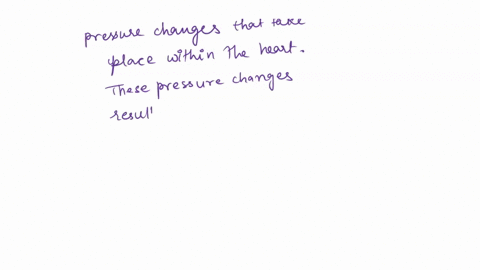 pressure changes that take
place within the heart.
These pressure changes
resul